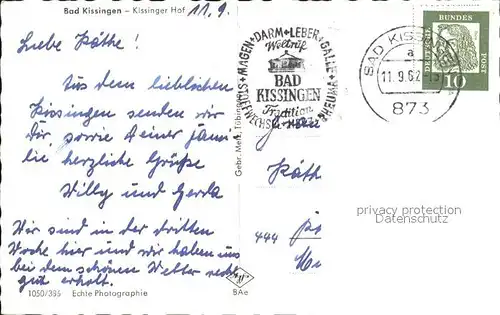 Bad Kissingen - Kissinger Hof 11.9.
Liebe Käthe!
Aus dem lieblichen
Kissingen senden wir
Dir, sowie Deiner Fami
lie, herzliche Grüße
Willy und Gerda
Wir sind in der dritten
Woche hier und wir haben uns
bei dem schönen Wetter recht
gut erholt.
1050/385 Echte Photographie
Gebr. Metz, Tübingen
BAe
MAGEN • DARM • LEBER • GALLE • RHEUMA • STOFFWECHSEL
Weltruf
BAD
KISSINGEN
Tradition
BAD KISSINGEN
a
11.9.62
873
DEUTSCHE BUNDESPOST
10
Käth
444
privacy protection
Datenschutz